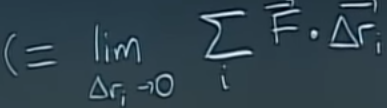 (= lim_{Δr_i→0} Σ_i F⃗ · Δr⃗_i